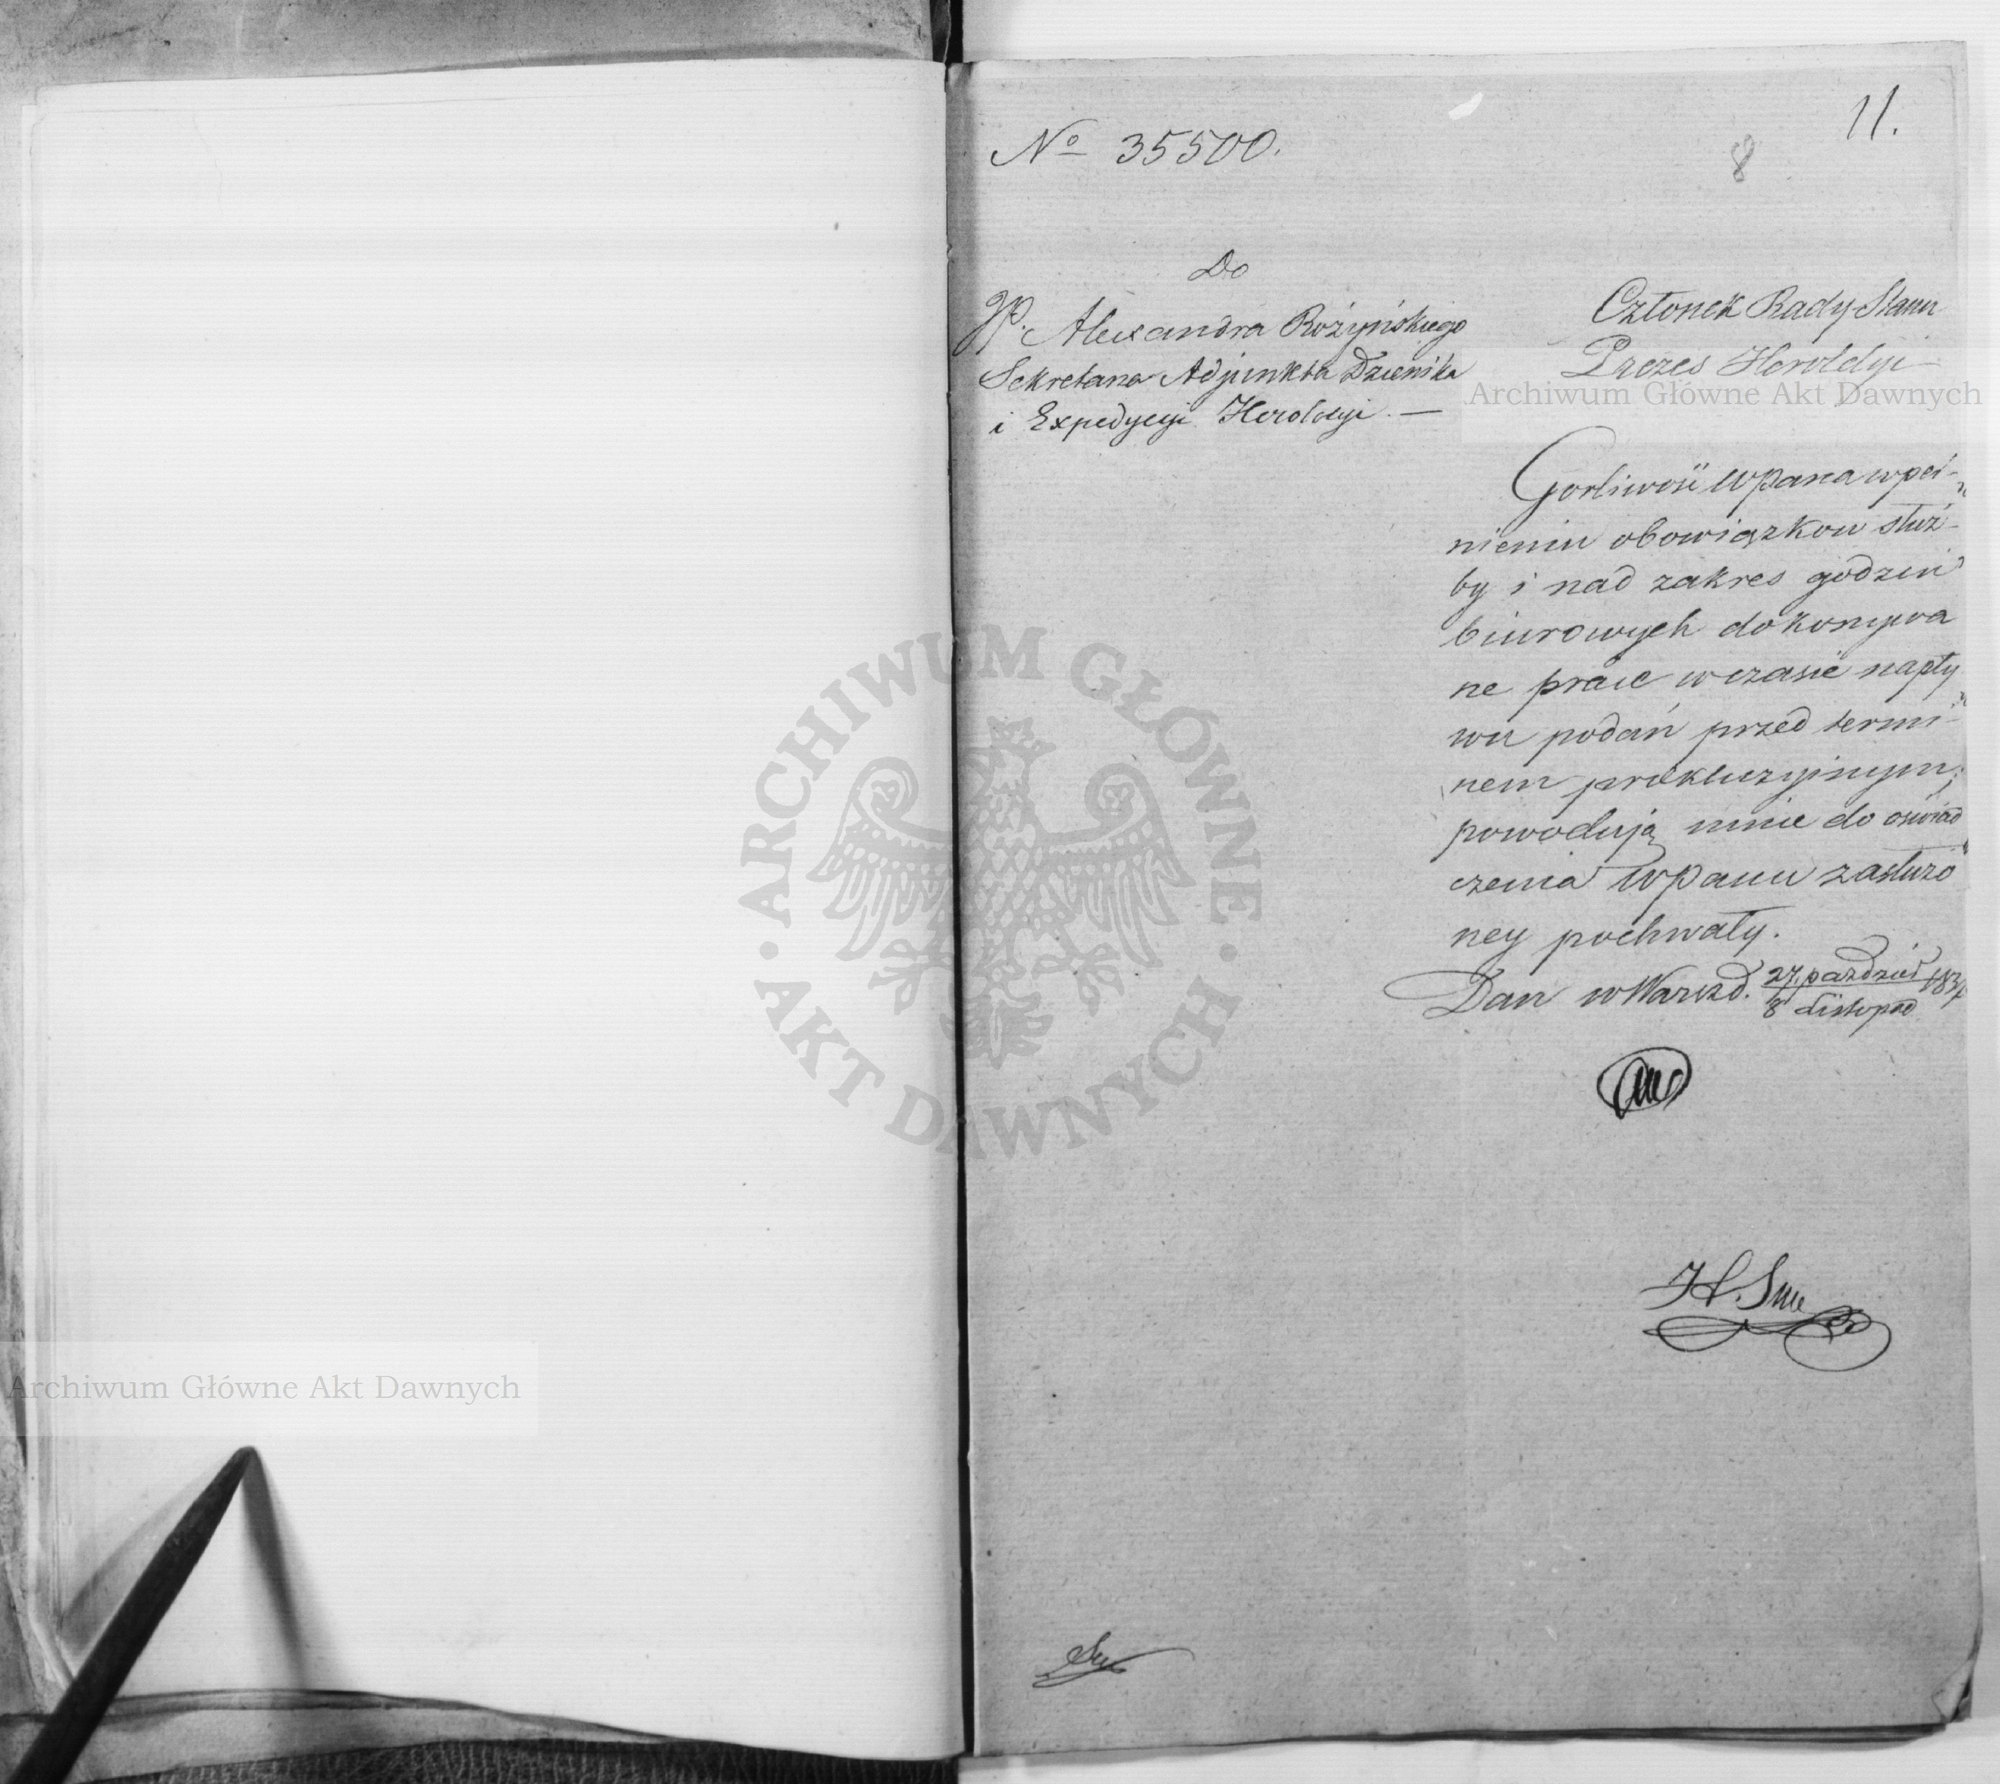 11.
8
Nº 35500.
Do
W. Alexandra Rożyńskiego
Sekretarza Adjunkta Dziennika
i Expedycyi Heroldyi. —
Członek Rady Stanu
Prezes Heroldyi
Gorliwość WPana w peł-
nieniu obowiązkow służ-
by i nad zakres godzin
biurowych dokonywa
ne prace w czasie napły
wu podań przed termi-
nem prekluzyinym;
powodują mnie do oświad
czenia WPanu zasłużo
ney pochwały.
Dan w Warsz d. 27 paździer
8 Listopad
H.
Archiwum Główne Akt Dawnych
Archiwum Główne Akt Dawnych
ARCHIWUM GŁÓWNE · AKT DAWNYCH ·